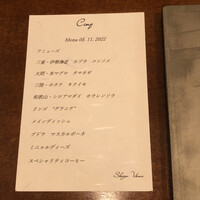 Cinq
Menu 05. 11. 2022
アミューズ
三重・伊勢海老 カブラ コンソメ
大間・本マグロ タマネギ
三陸・ホタテ キクイモ
和歌山・シロアマダイ ホウレンソウ
リンゴ "グラニテ"
メインディッシュ
ブドウ マスカルポーネ
ミニャルディーズ
スペシャリティコーヒー